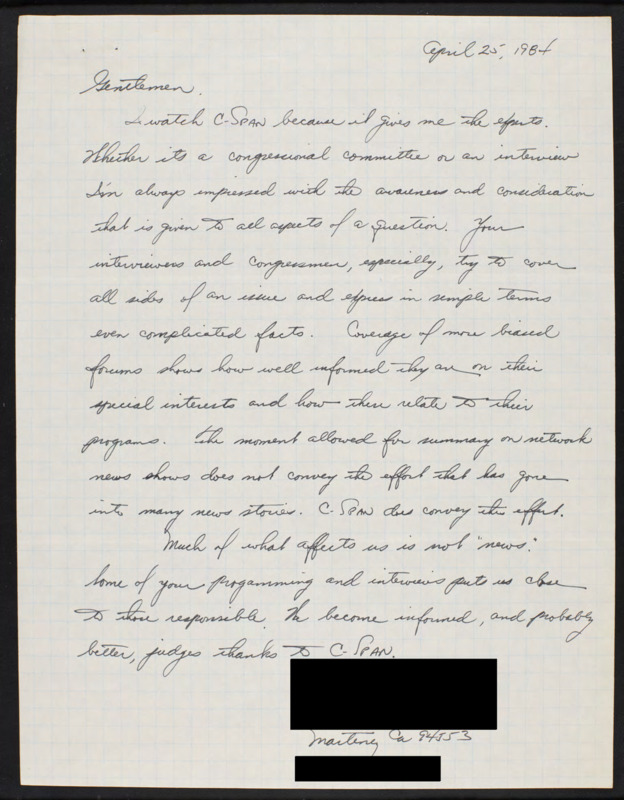 April 25, 1984
Gentlemen.
I watch C-SPAN because it gives me the experts.
Whether its a congressional committee or an interview
I'm always impressed with the awareness and consideration
that is given to all aspects of a question. Your
interviewers and congressmen, especially, try to cover
all sides of an issue and express in simple terms
even complicated facts. Coverage of more biased
forums shows how well informed they are on their
special interests and how these relate to their
programs. The moment allowed for summary on network
news shows does not convey the effort that has gone
into many news stories. C-SPAN does convey this effort.
Much of what affects us is not "news".
Some of your progamming and interviews puts us close
to those responsible. We become informed, and probably
better, judges thanks to C-SPAN.
Martinez Ca 94553